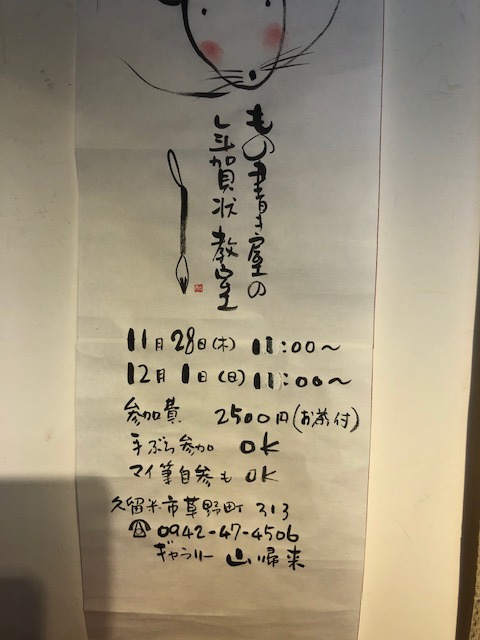 もの書き屋の
年賀状教室
11月28日(木) 11:00〜
12月1日(日) 11:00〜
参加費 2500円(お茶付)
手ぶら参加 OK
マイ筆自参も OK
久留米市草野町 313
☎ 0942-47-4506
ギャラリー 山帰来